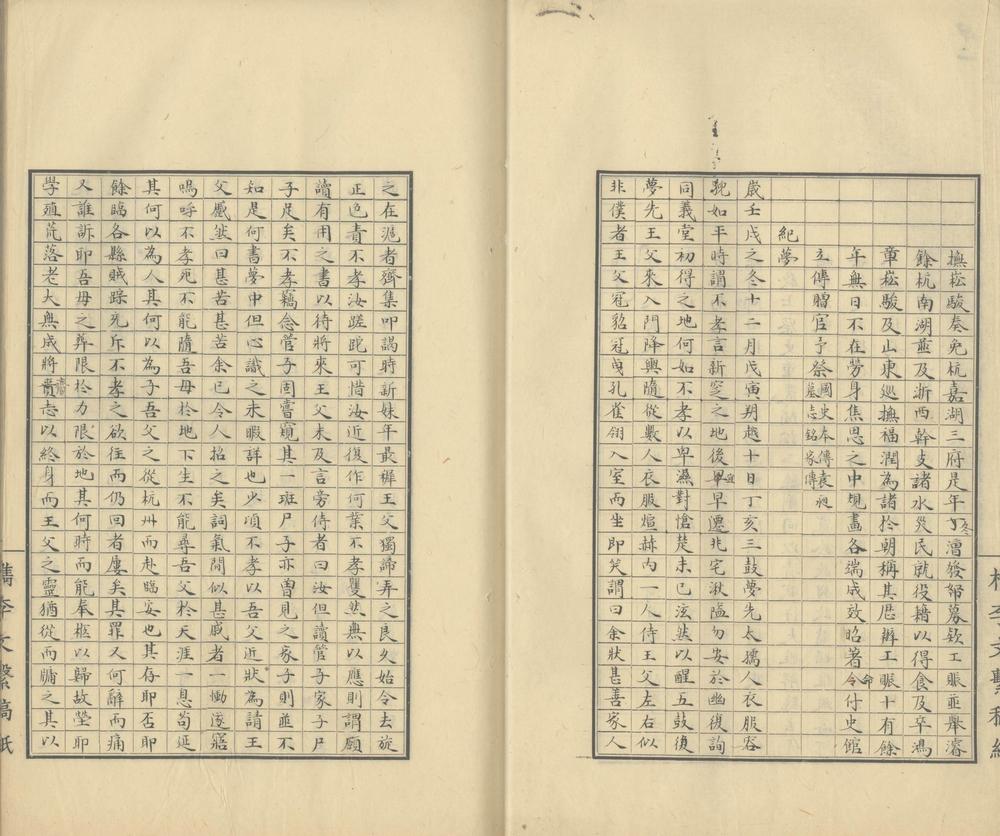 撫崧駿奏免杭嘉湖三府是年冬漕發帑募欽工賑並舉濬
餘杭南湖並及浙西幹支諸水災民就役藉以得食及卒馮
章崧駿及山東巡撫福潤為諸於朝稱其歷辦工賑十有餘
年無日不在勞身焦思之中規畫各端成效昭著命付史館
立傳贈官予祭國史本傳袁昶墓志銘家傳
紀夢
歲壬戌之冬十二月戊寅朔越十日丁亥三鼓夢先太孺人衣服容
貌如平時謂不孝言新窆之地後宜早遷兆宅湫隘勿安於幽復詢
同義堂初得之地何如不孝以卑濕對愴楚未已泫然以醒五鼓復
夢先王父來入門降輿隨從數人衣服煊赫內一人侍王父左右似
非僕者王父冠貂冠曳孔雀翎入室而坐即笑謂曰余狀甚善家人
之在滬者齊集叩謁時新妹年最穉王父獨諦弄之良久始令去旋
正色責不孝汝蹉跎可惜汝近復作何業不孝矍然無以應則謂願
讀有用之書以待將來王父未及言旁侍者曰汝但讀管子家子尸
子足矣不孝竊念管子固嘗窺其一斑尸子亦曾見之家子則並不
如是何書夢中但心識之未暇詳也少頃不孝以吾父近狀為請王
父蹙然曰甚苦甚苦余已令人招之矣詞氣間似甚戚者一慟遂寤
嗚呼不孝死不能隨吾母於地下生不能尋吾父於天涯一息苟延
其何以為人其何以為子吾父之從杭州而赴臨安也其存耶否耶
餘臨各縣賊蹤充斥不孝之欲往而仍回者屢矣其罪又何辭而痛
又誰訴耶吾母之葬限於力限於地其何時而能奉柩以歸故塋耶
學殖荒落老大無成將齎志以終身而王父之靈猶從而牖之其以
檇李文繫稿紙